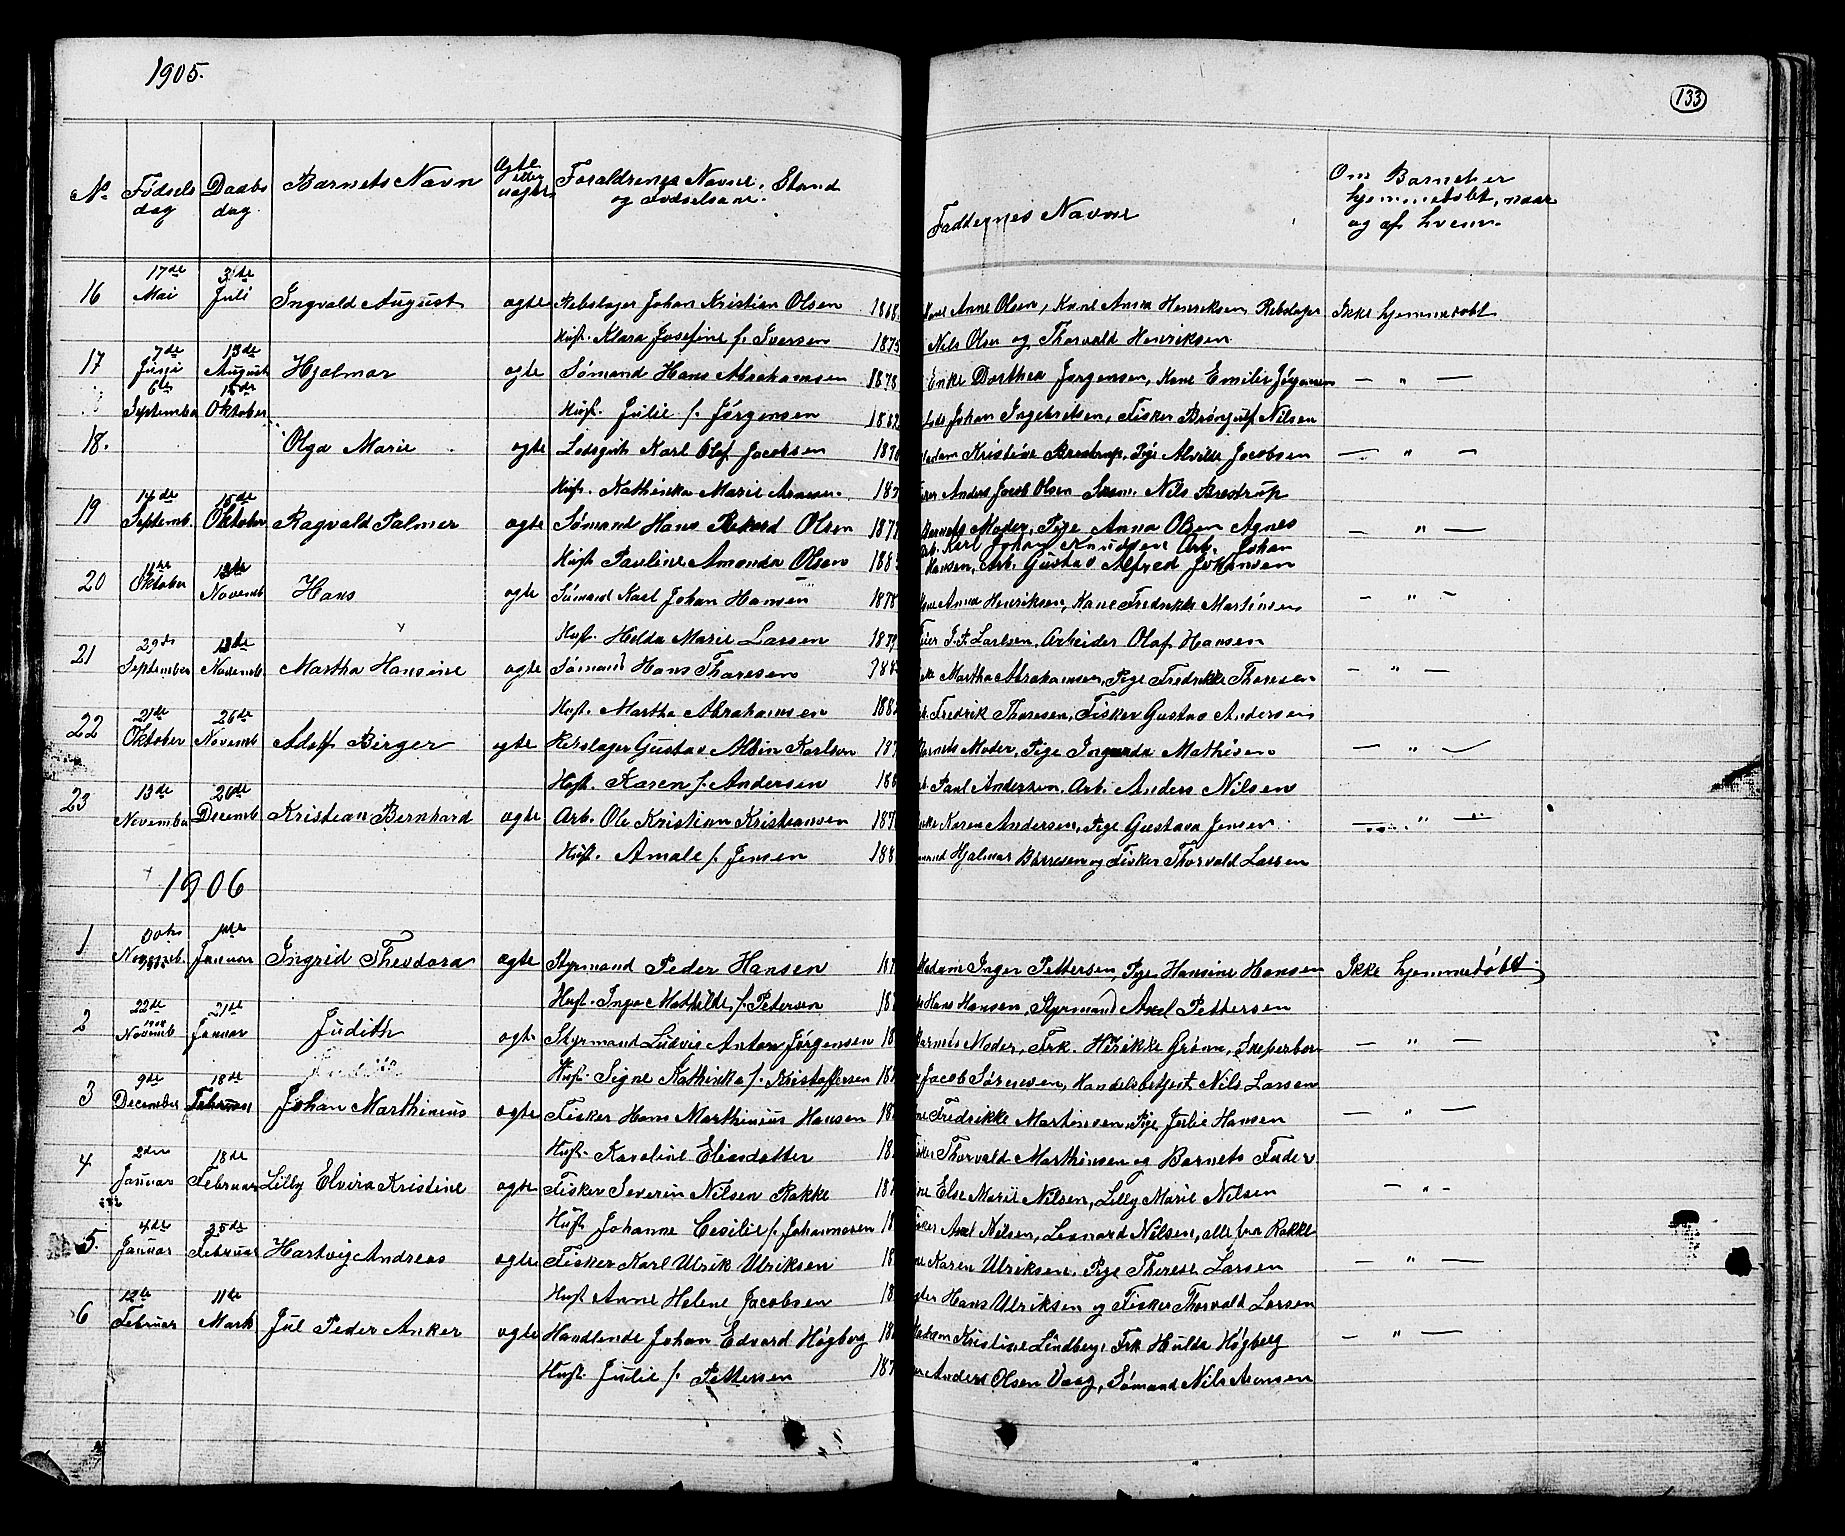 1905.
133
No Fødsels dag Daabs dag Barnets Navn Ægte eller uægte Forældrenes Navne, Stand og Fødselsaar.
Faddernes Navne
Om Barnet er hjemmedøbt, naar og af hvem.
16 17de Mai Juli Ingvald August ægte Rebslager Johan Kristian Olsen 1868 Anne Olsen, Kone Anna Henriksen, Rebslager Ikke hjemmedøbt
Hust. Klara Josefine f. Iversen 1875 Nils Olsen og Thorvald Henriksen
17 7de 13de August Hjalmar ægte Sømand Hans Abrahamsen 1878 Enke Dorthea Jørgensen, Kone Emilie Jørgensen — " —
6te September Oktober Hust. Julie f. Jørgensen 1882 Johan Ingebretsen, Fisker Brønjulf Nilsen
18. Olga Marie ægte Lodsgut Karl Olaf Jacobsen Madam Kristine Brestrup, Pige Alvilde Jacobsen — " —
Hust. Kathinka Marie Anders Jacob Olsen Nils Brestrup
19 14de Septemb. 15de Oktober Ragvald Palmer ægte Sømand Hans Olsen Barnets Moder, Pige Anna Olsen Agnes — " —
Arb. Karl Johan Knudsen Arb. Johan
Hust. Pauline Amanda Olsen 188 Hansen, Arb. Gustav Alfred Johansen
20 Oktober Novemb Hans ægte Sømand Karl Johan Hansen 1878 Anna Henriksen, Kone Fredrikke Martinsen — " —
Hust. Helda Marie Larsen 1879 J. P. Larsen, Arbeider Olaf Hansen
21 29de September Novemb Martha Hansine ægte Sømand Hans Thoresen 188 Martha Abrahamsen, Pige Fredrikke Thoresen — " —
Hust. Martha Abrahamsen 188 Fredrik Thoresen, Fisker Gustav Andersen
22 21de Oktober 26de Novemb Adolf Birger ægte Rebslager Gustav Albin Karlson 187 Barnets Moder, Pige Ingarda Mathisen — " —
Hust. Karen f. Andersen 188 Paul Andersen, Arb. Anders Nilsen
23 13de November 26de Decemb Kristian Bernhard ægte Arb. Ole Kristian Kristiansen 187 Karen Andersen, Pige Gustava Jensen — " —
Hust. Amale f. Jensen 188 Hjalmar Børresen og Fisker Thorvald Larsen
1906
1 Novemb. Januar Ingrid Theodora ægte Styrmand Peder Hansen 187 Madam Inger Pettersen, Pige Hansine Hansen Ikke hjemmedøbt
Hust. Inga Mathilde f. Petersen 18 Hans Hansen, Styrmand Axel Pettersen
2 22de Novemb 21de Januar Judith ægte Styrmand Ludvig Anton Jørgensen 18 Barnets Moder, Frk. Grønn, — " —
Hust. Signe Kathinka f. Kristoffersen 18 Jacob Sørensen, Handelsbetjent Nils Larsen
3 9de December 18de Februar Johan Marthinius ægte Fisker Hans Marthinius Hansen 18 Fredrikke Martinsen, Pige Julie Hansen — " —
Hust. Karoline Eliasdatter 18 Thorvald Marthinsen og Barnets Fader
4 2den Januar 18de Februar Lilly Elvira Kristine ægte Fisker Severin Nilsen Rakke 18 Else Marie Nilsen, Lilly Marie Nilsen — " —
Hust. Johanne Cecilie f. Johannesen 18 Axel Nilsen, Leonard Nilsen, alle fra Rakke
5. 4de Januar 25de Februar Hartvig Andreas ægte Fisker Karl Ulrik Ulriksen 18 Karen Ulriksen, Pige Therese Larsen — " —
Hust. Anne Helene Jacobsen 18 Hans Ulriksen og Fisker Thorvald Larsen
6 12te Februar 11te Mark Jul Peder Anker ægte Handlende Johan Edvard Høgberg 18 Madam Kristine Lindberg, Frk Hulda Høgberg — " —
Hust. Julie f. Pettersen 187 Anders Olsen Vaag, Sømand Nils Aronsen